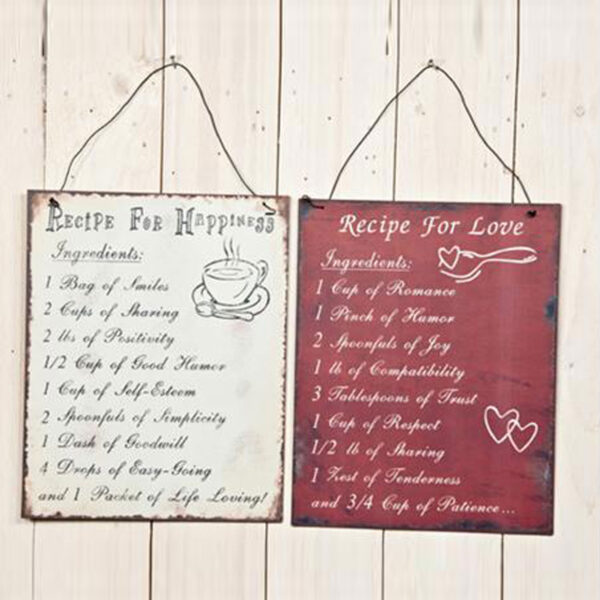 Recipe For Happiness
Ingredients:
1 Bag of Smiles
2 Cups of Sharing
2 lbs of Positivity
1/2 Cup of Good Humor
1 Cup of Self-Esteem
2 Spoonfuls of Simplicity
1 Dash of Goodwill
4 Drops of Easy-Going
and 1 Packet of Life Loving!
Recipe For Love
Ingredients:
1 Cup of Romance
1 Pinch of Humor
2 Spoonfuls of Joy
1 lb of Compatibility
3 Tablespoons of Trust
1 Cup of Respect
1/2 lb of Sharing
1 Zest of Tenderness
and 3/4 Cup of Patience...